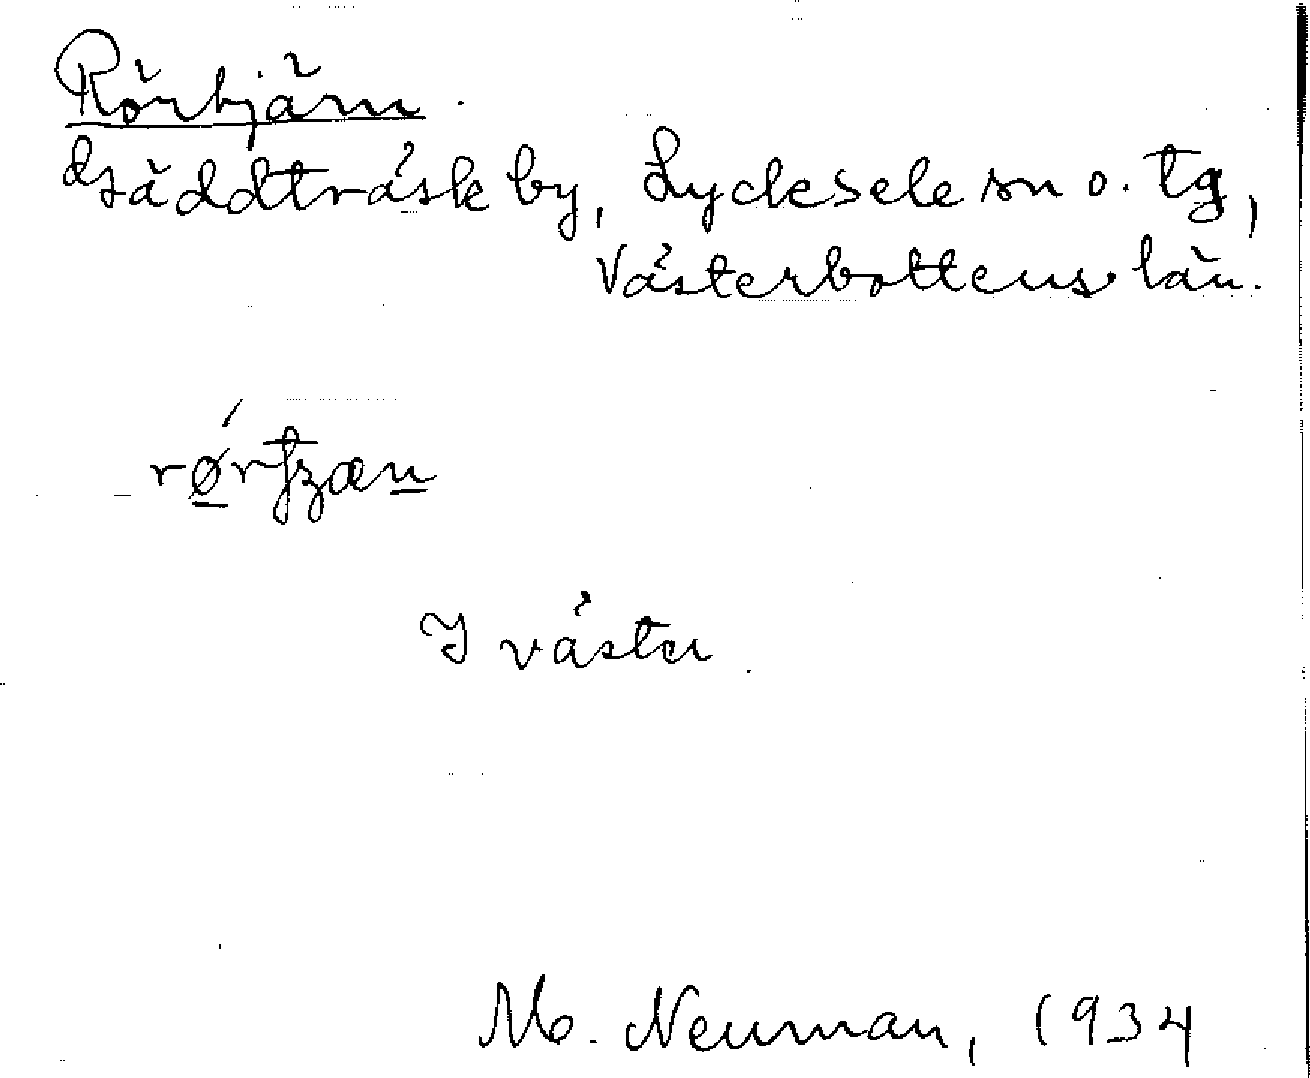 Rörtjärn.
Gäddträsk by, Lycksele sn o. tg,
Västerbottens län.
I väster
M. Neuman, 1934